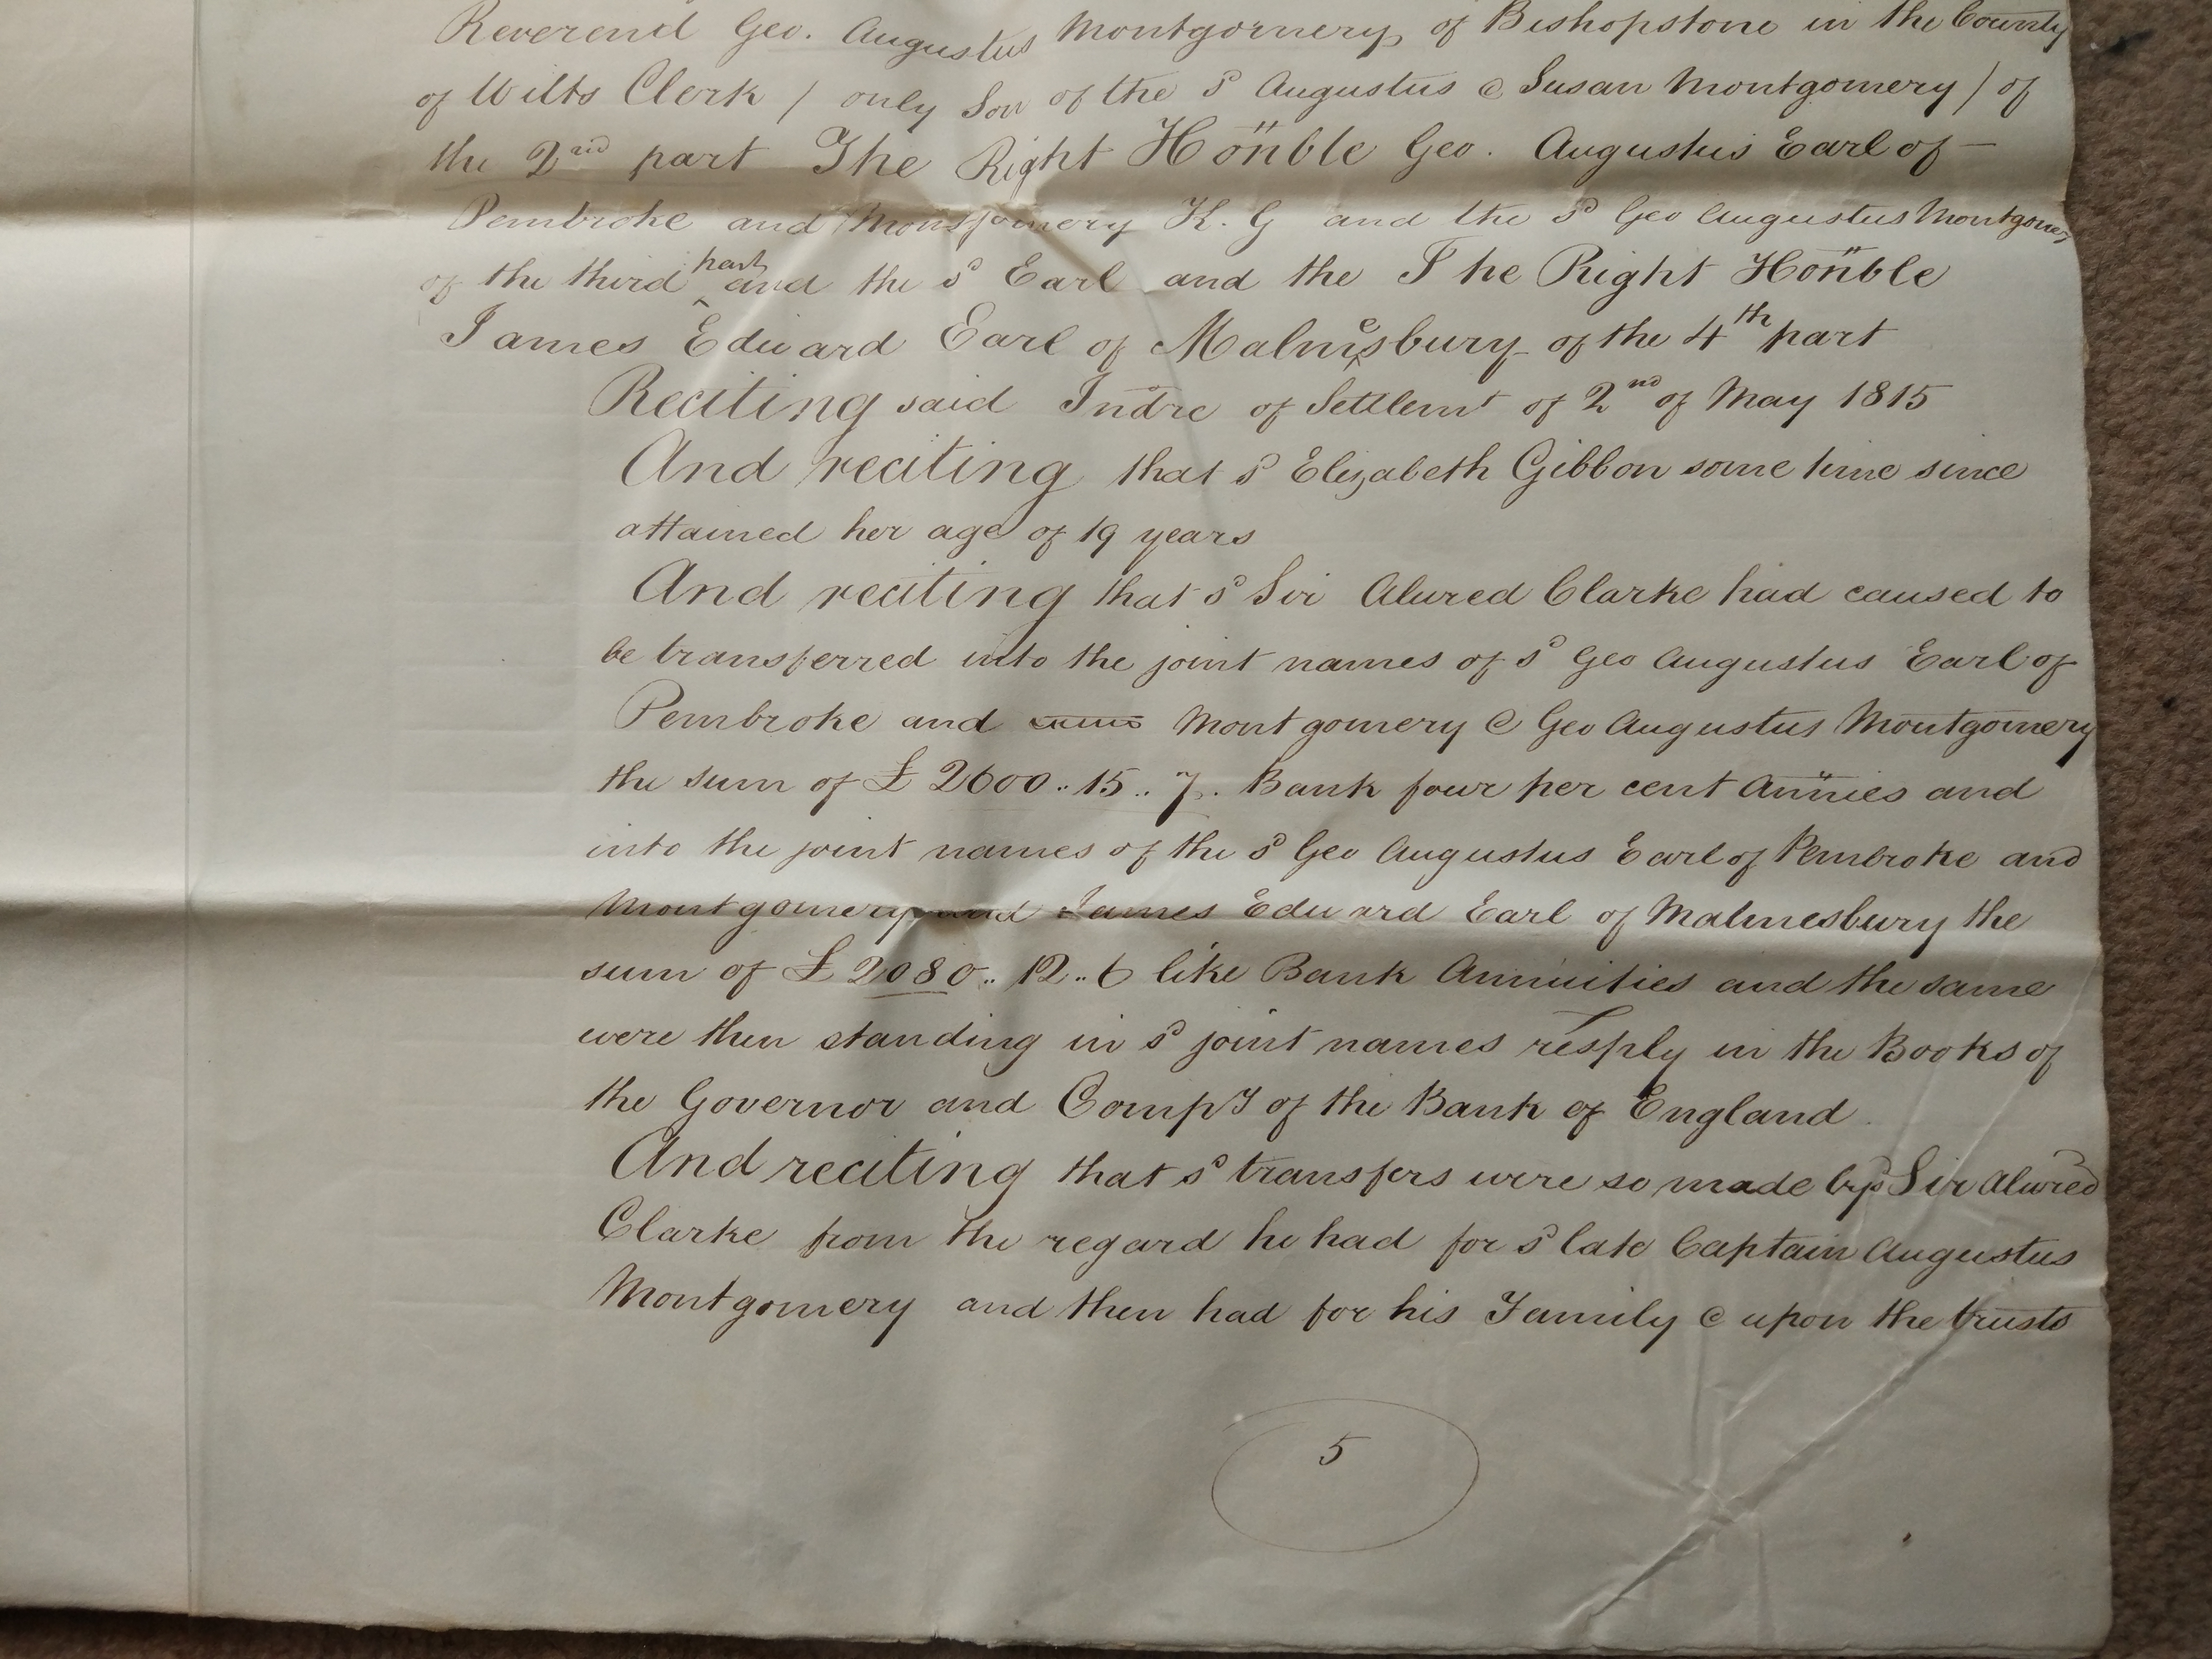 Reverend Geo. Augustus Montgomery, of Bishopstone in the County
of Wilts Clerk / only Son of the sd Augustus & Susan Montgomery / of
the 2nd part The Right Honble Geo. Augustus Earl of —
Pembroke and Montgomery K. G and the sd Geo Augustus Montgomery
of the third part and the sd Earl and the The Right Honble
James Edward Earl of Malmesbury of the 4th part
Reciting said Indre of Settlemt of 2nd of May 1815
And reciting that sd Elizabeth Gibbon some time since
attained her age of 19 years
And reciting that sd Sir Alured Clarke had caused to
be transferred into the joint names of sd Geo Augustus Earl of
Pembroke and Montgomery & Geo Augustus Montgomery
the sum of £ 2600..15..7. Bank four per cent Annies and
into the joint names of the sd Geo Augustus Earl of Pembroke and
Montgomery and James Edward Earl of Malmesbury the
sum of £ 2080..12..6 like Bank Annuities and the same
were then standing in sd joint names resply in the Books of
the Governor and Compy of the Bank of England
And reciting that sd transfers were so made by sd Sir Alured
Clarke from the regard he had for sd late Captain Augustus
Montgomery and then had for his Family & upon the trusts
5